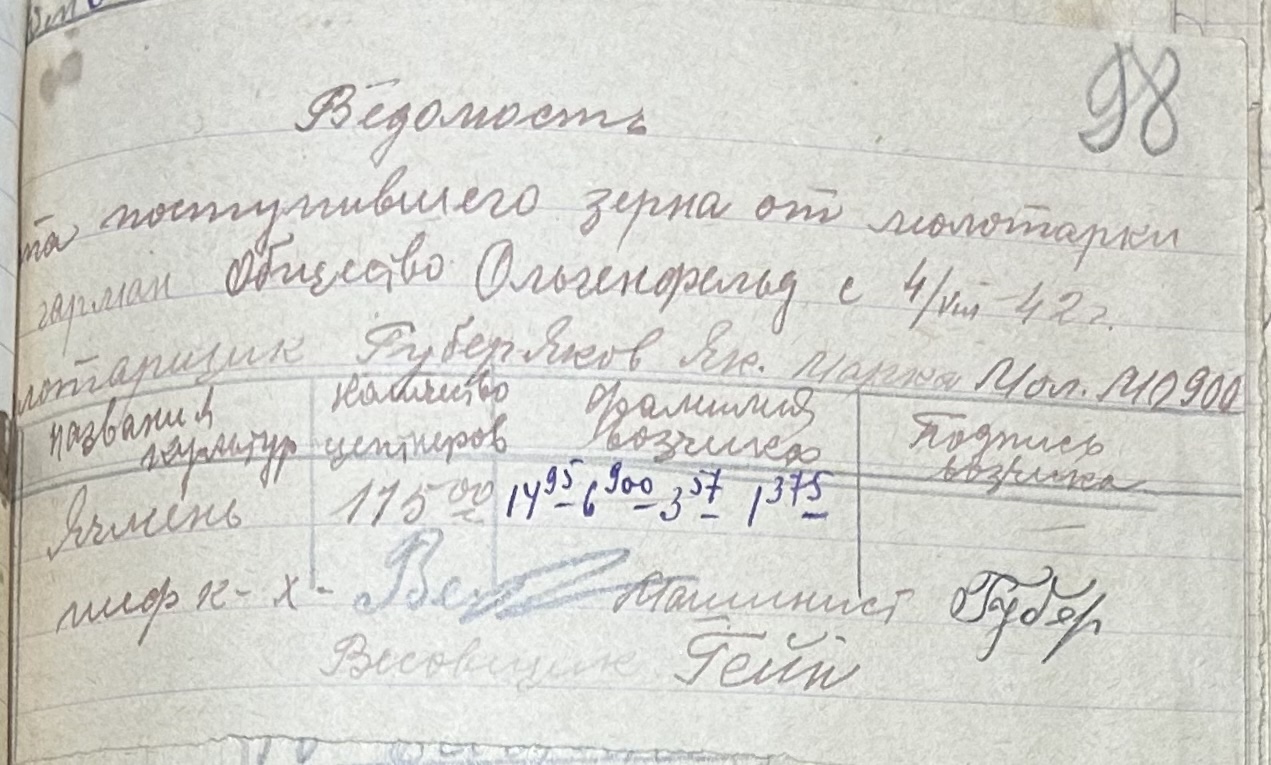 98
Ведомость
та поступившего зерна от молотарки
гарман Общество Ольгенфельд с 4/VIII-42 г.
лотарщик Губер Яков Як. Марка Мол. МО 900
Названия культур
Количество центнеров
Фамилия возчика
Подпись возчика
Ячмень 115 00 14 95 6 900 3 57 1 375 —
шеф к-х- Машинист Губер
Весовщик Гейн